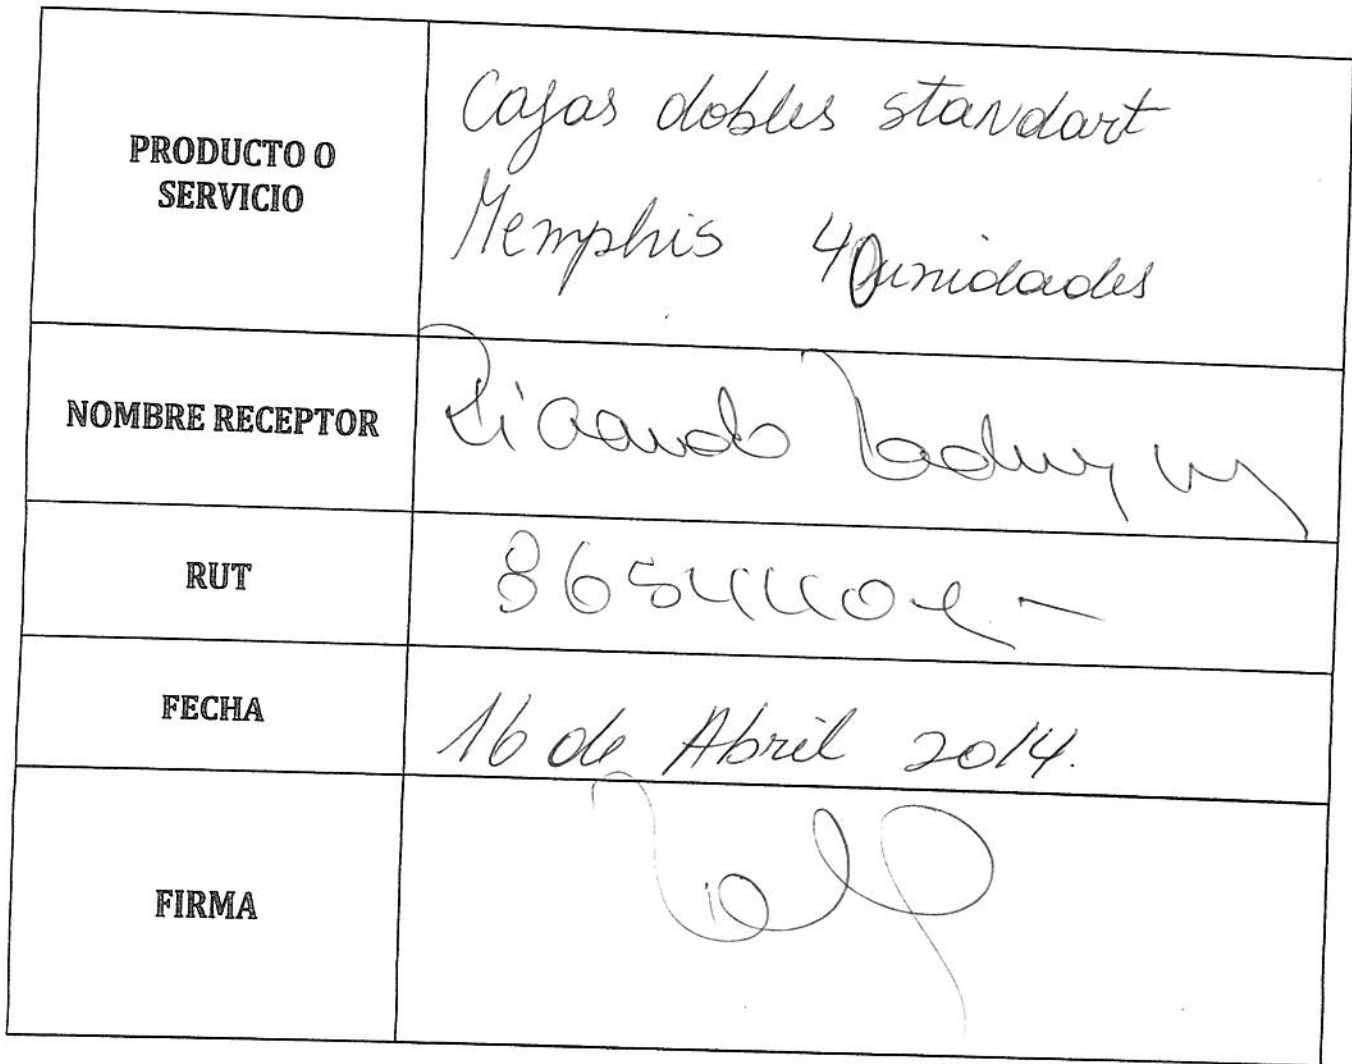 PRODUCTO O
SERVICIO
Cajas dobles standart
Memphis 40 unidades
NOMBRE RECEPTOR
Ricardo
RUT
FECHA
16 de Abril 2014.
FIRMA